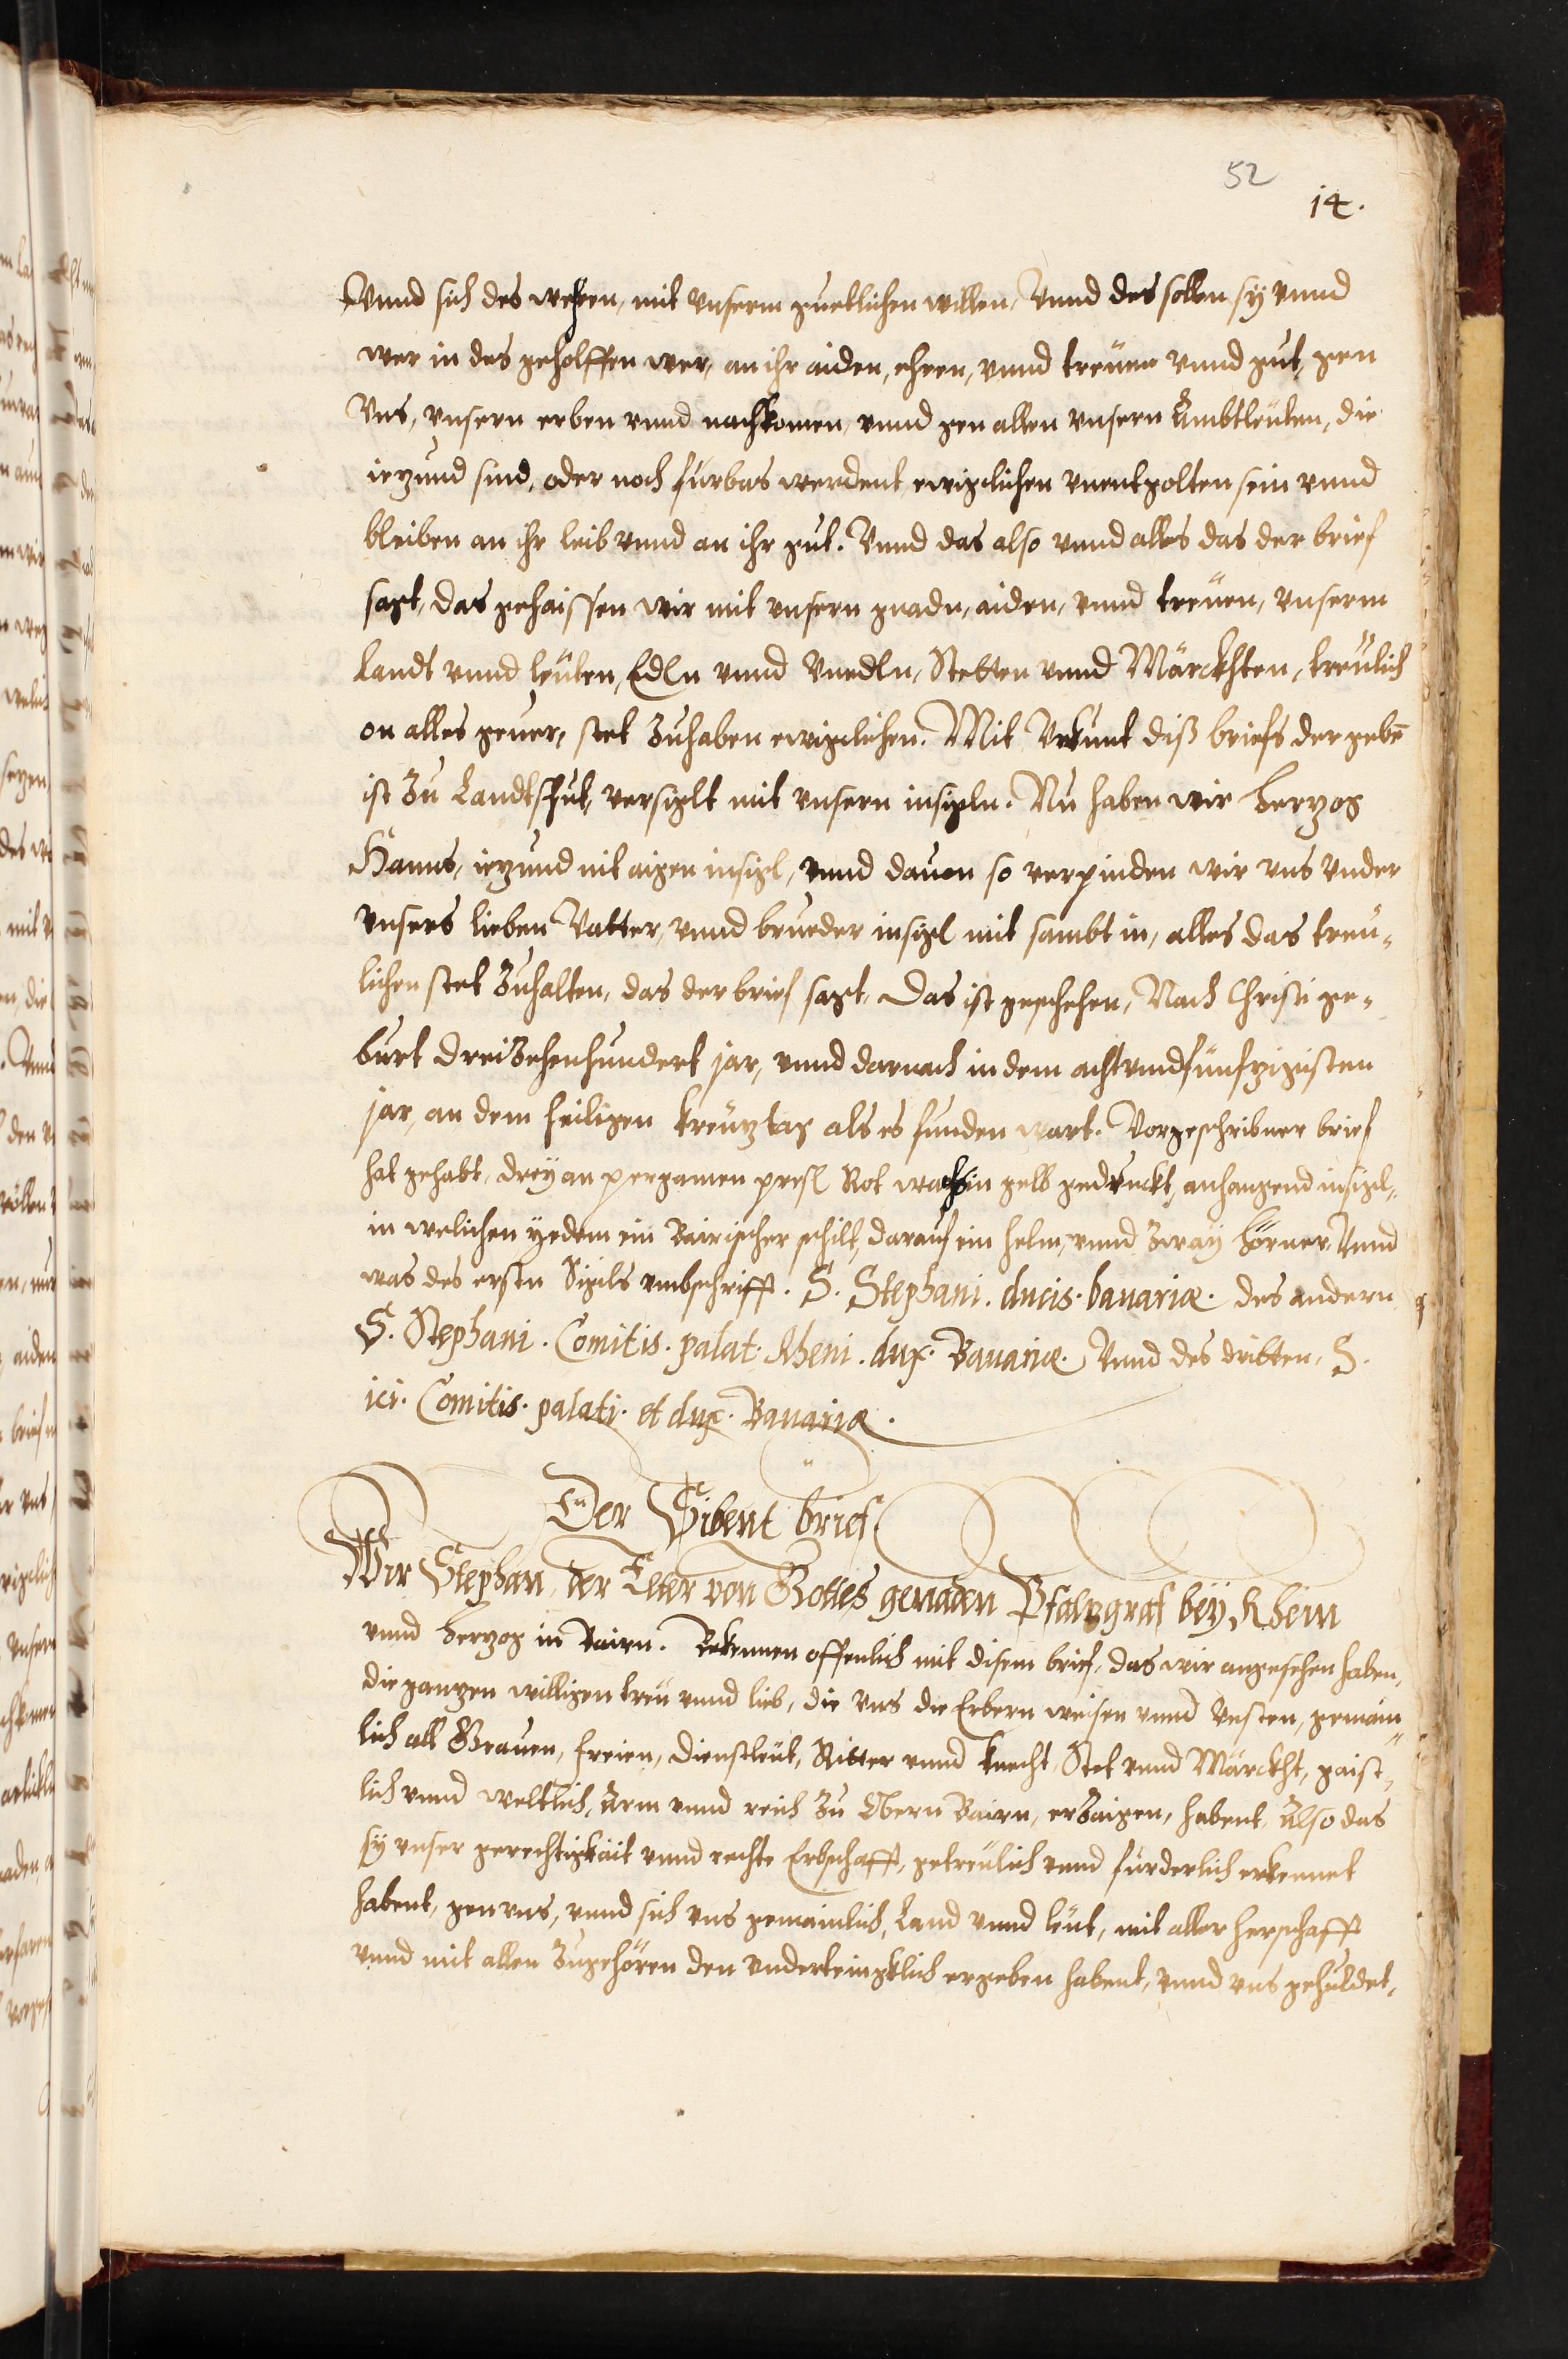 52
14.
Vnnd sich des weren, mit vnserm guetlichen willen, Vnnd des sollen sy vnnd
wer in des geholffen wer, an ihr aiden, ehren, vnnd treuen vnnd gut, gen
Vns, vnsern erben vnnd nachkomen, vnnd gen allen vnsern Ambtleuten, die
iezund sind, oder noch fürbas werdent ewigclichen vnentgolten sein vnnd
bleiben an ihr leib vnnd an ihr gut. Vnnd das also vnnd alles das der brief
sagt, das gehaissen wir mit vnsern gnadn, aiden, vnnd treuen, vnserm
Landt vnnd leuten, Edln vnnd Vnedln, Stetten vnnd Märckhten, treulich
on alles geuer, stet zuhaben ewigclichen. Mit Vrkunt diß briefs der gebē
ist zu Landtshut, versiglt mit vnsern insigln. Nu haben wir Herzog
Hanns, iezund nit aigen insigl, vnnd dauon so verpinden wir vns vnder
vnsers lieben Vatter, vnnd brueder insigl mit sambt in, alles das treu-
lichen stet zuhalten, das der brief sagt. Das ist geschehen, Nach Christi ge-
burt dreizehenhundert jar, vnnd darnach in dem achtvndfünfzigisten
jar, an dem heiligen kreuztag als es funden wart. Vorgeschribner brief
hat gehabt, drey an pergamen presl Rot wachs in gelb gedruckt, anhangend insigl,
in welichen yedem ein Bairischer schilt, darauf ein helm, vnnd zway hörner, Vnnd
was des ersten Sigils vmbschrifft. S. Stephani. ducis. bauariæ. des andern
S. Stephani. Comitis. palat. Rheni. dux. Bauariæ. Vnnd des dritten, S.
ici. Comitis. palati. et dux. Bauariæ.
Der Sibent brief.
Wir Stephan der Elter von Gottes genaden Pfalzgraf bey Rhein
vnnd Herzog in Bairn. Bekennen offenlich mit disem brief, das wir angesehen haben,
die ganzen willigen treu vnnd lieb, die vns die Erbern weisen vnnd Vesten, gemain-
lich all Grauen, freien, dienstleut, Ritter vnnd knecht, Stet vnnd Märckht, gaist-
lich vnnd weltlich, Arm vnnd reich zu Obern Bairn, erzaigen, habent, Also das
sy vnser gerechtigkait vnnd rechte Erbschafft, getreulich vnnd fürderlich erkennet
habent, gen vns, vnnd sich vns gemainlich, Land vnnd leut, mit aller herschafft
vnnd mit allen zugehören den vnderteingklich ergeben habent, vnnd vns gehuldet,